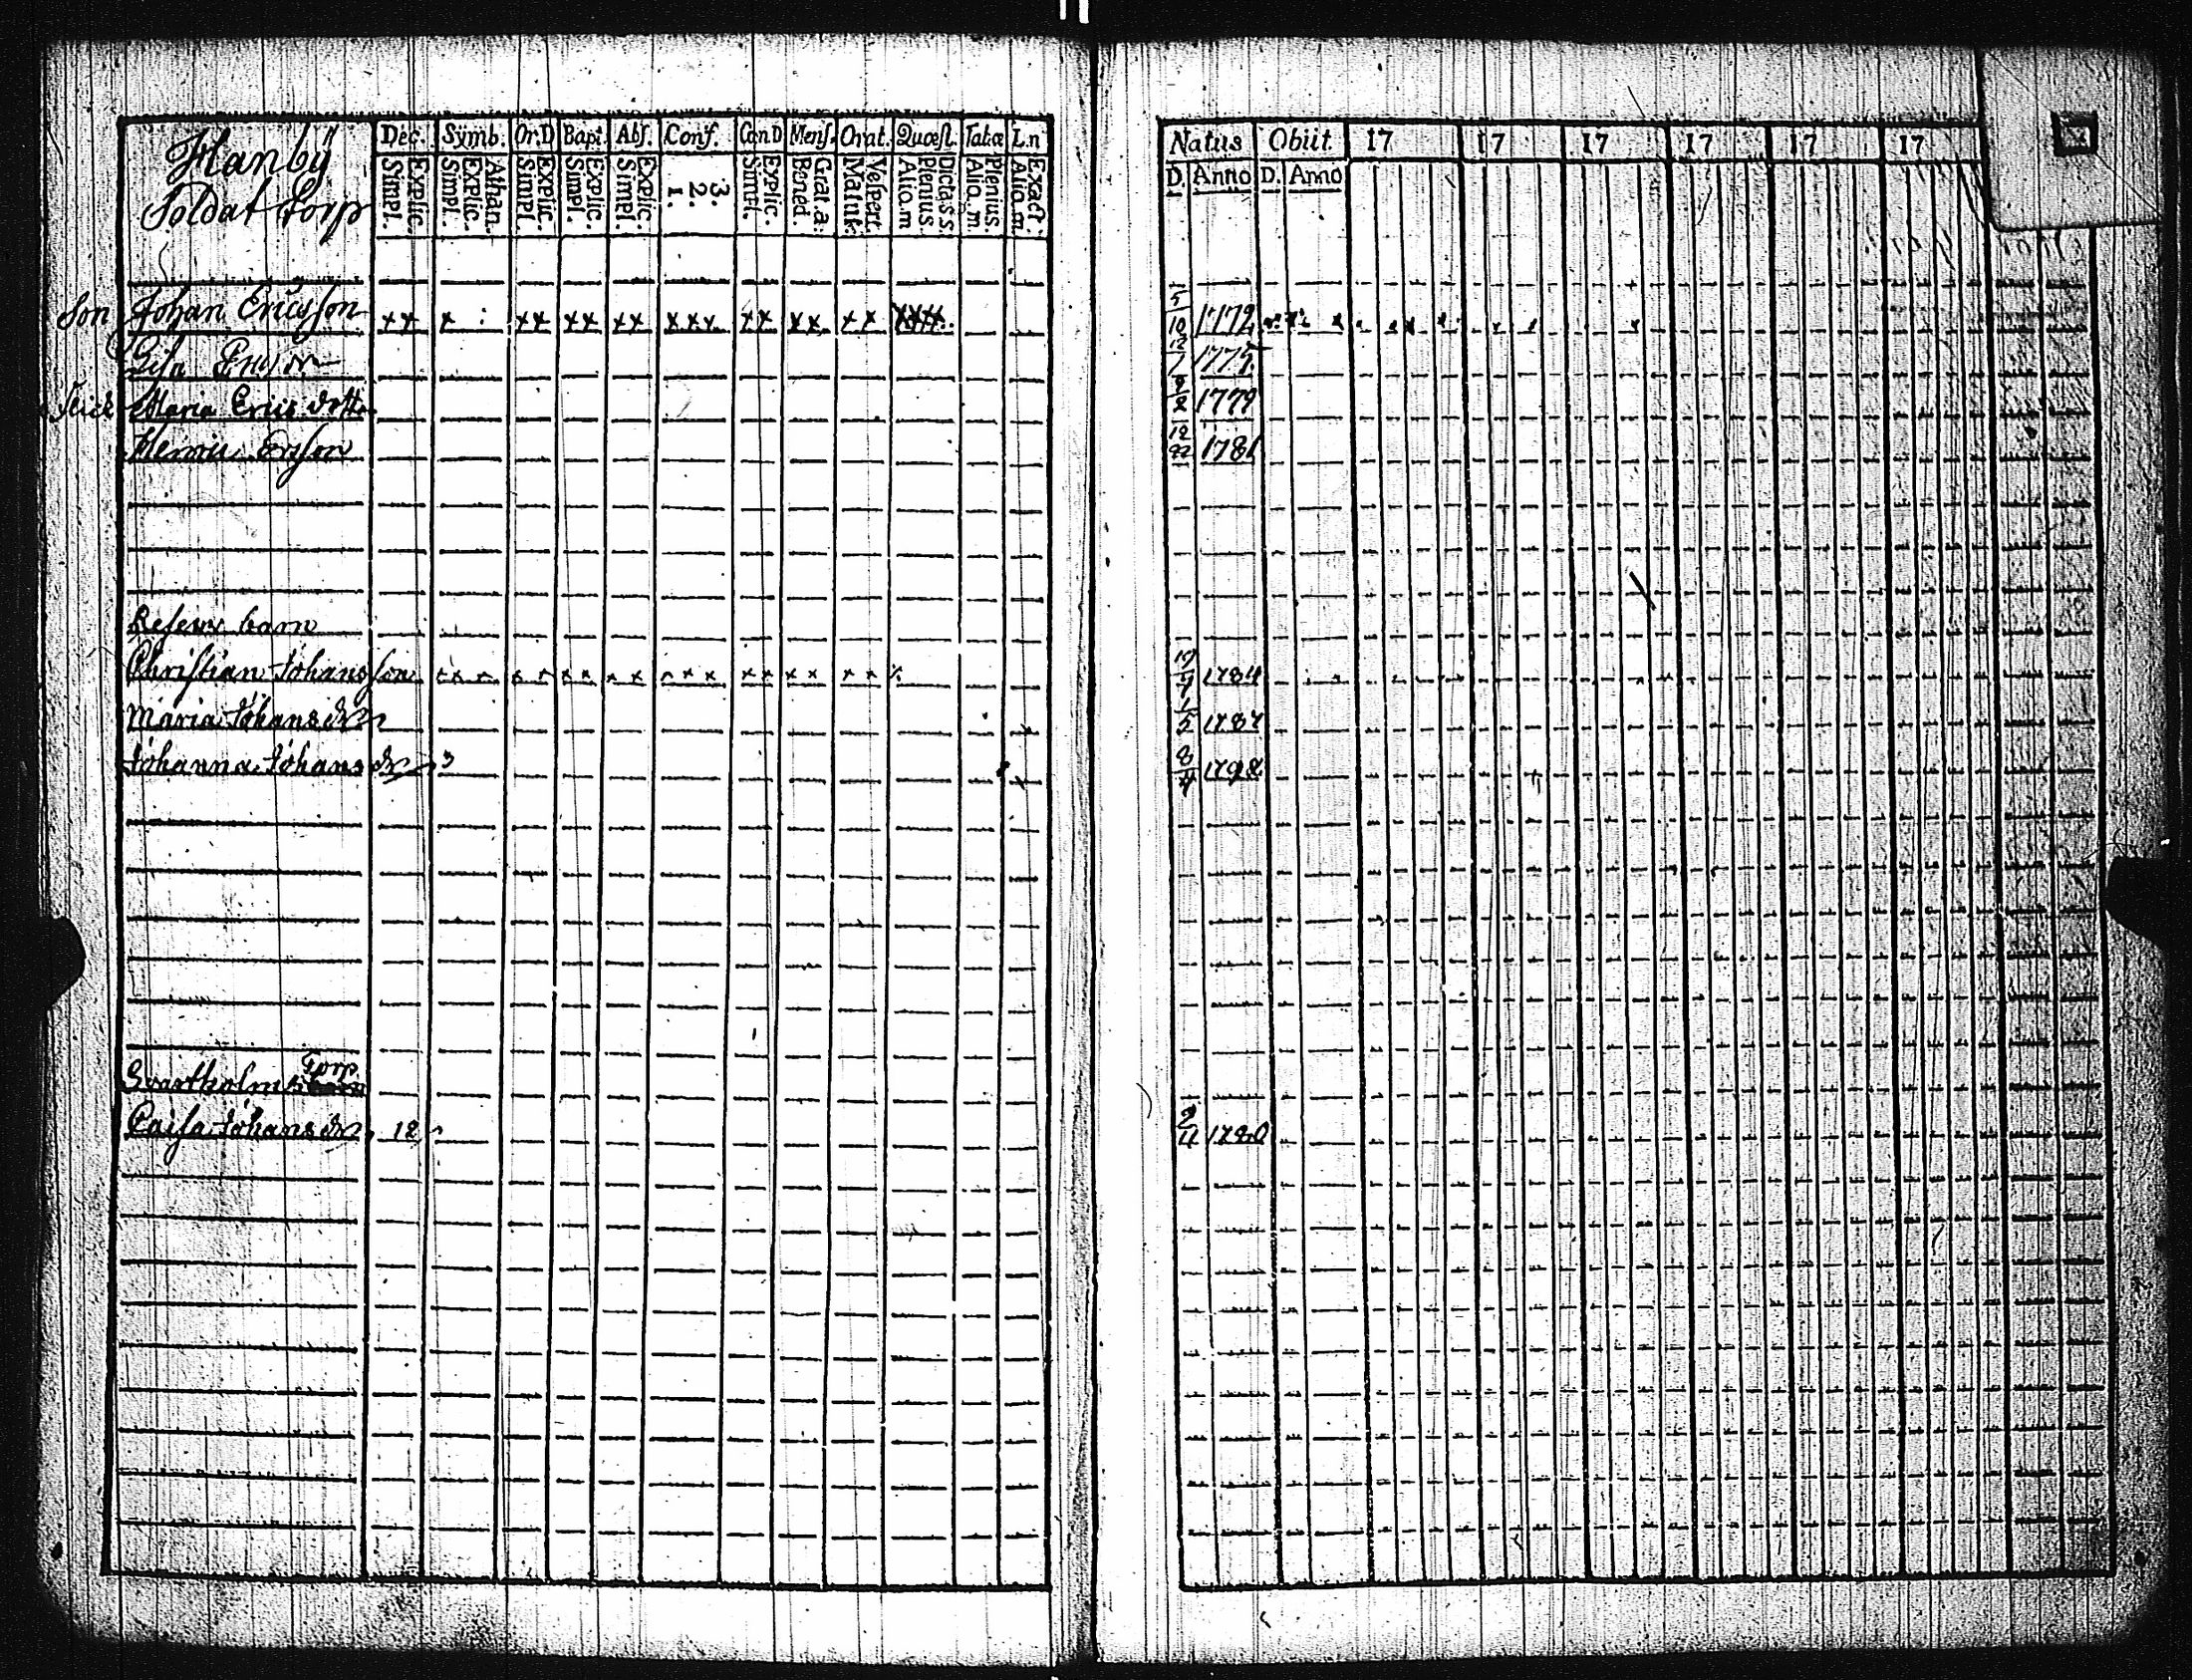 Hanbÿ
Soldat Torp
Dec. Symb. Or.D Bapt. Abs. Conf. Can D Mens. Orat. Quæst. Tabæ L.n
Explic. Simpl. Athan. Explic. Simpl. Explic. Simpl. Explic. Simpl. Explic. Simpl. 3. 2. 1. Explic. Simpl. Grat. a. Bened. Vespert. Matut. Dicta s.s. Plenius. Aliq. m Plenius. Aliq. m. Exact. Aliq. m
Natus Obiit. 17 17 17 17 17 17
D. Anno D. Anno
Son Johan Ericsson xx x : xx xx xx xxx xx xx xx xxx 5/10 1772
1775
Maria Erics dotter 9/2 1779
Henric Ersson 12/22 1781
barn
Christian Johansson 1784
Maria Johans dr 1/5 1787
Johanna Johans dr 3 8/4 1792
Svartholms Torp
Caisa Johans dr 12 2/11 1780